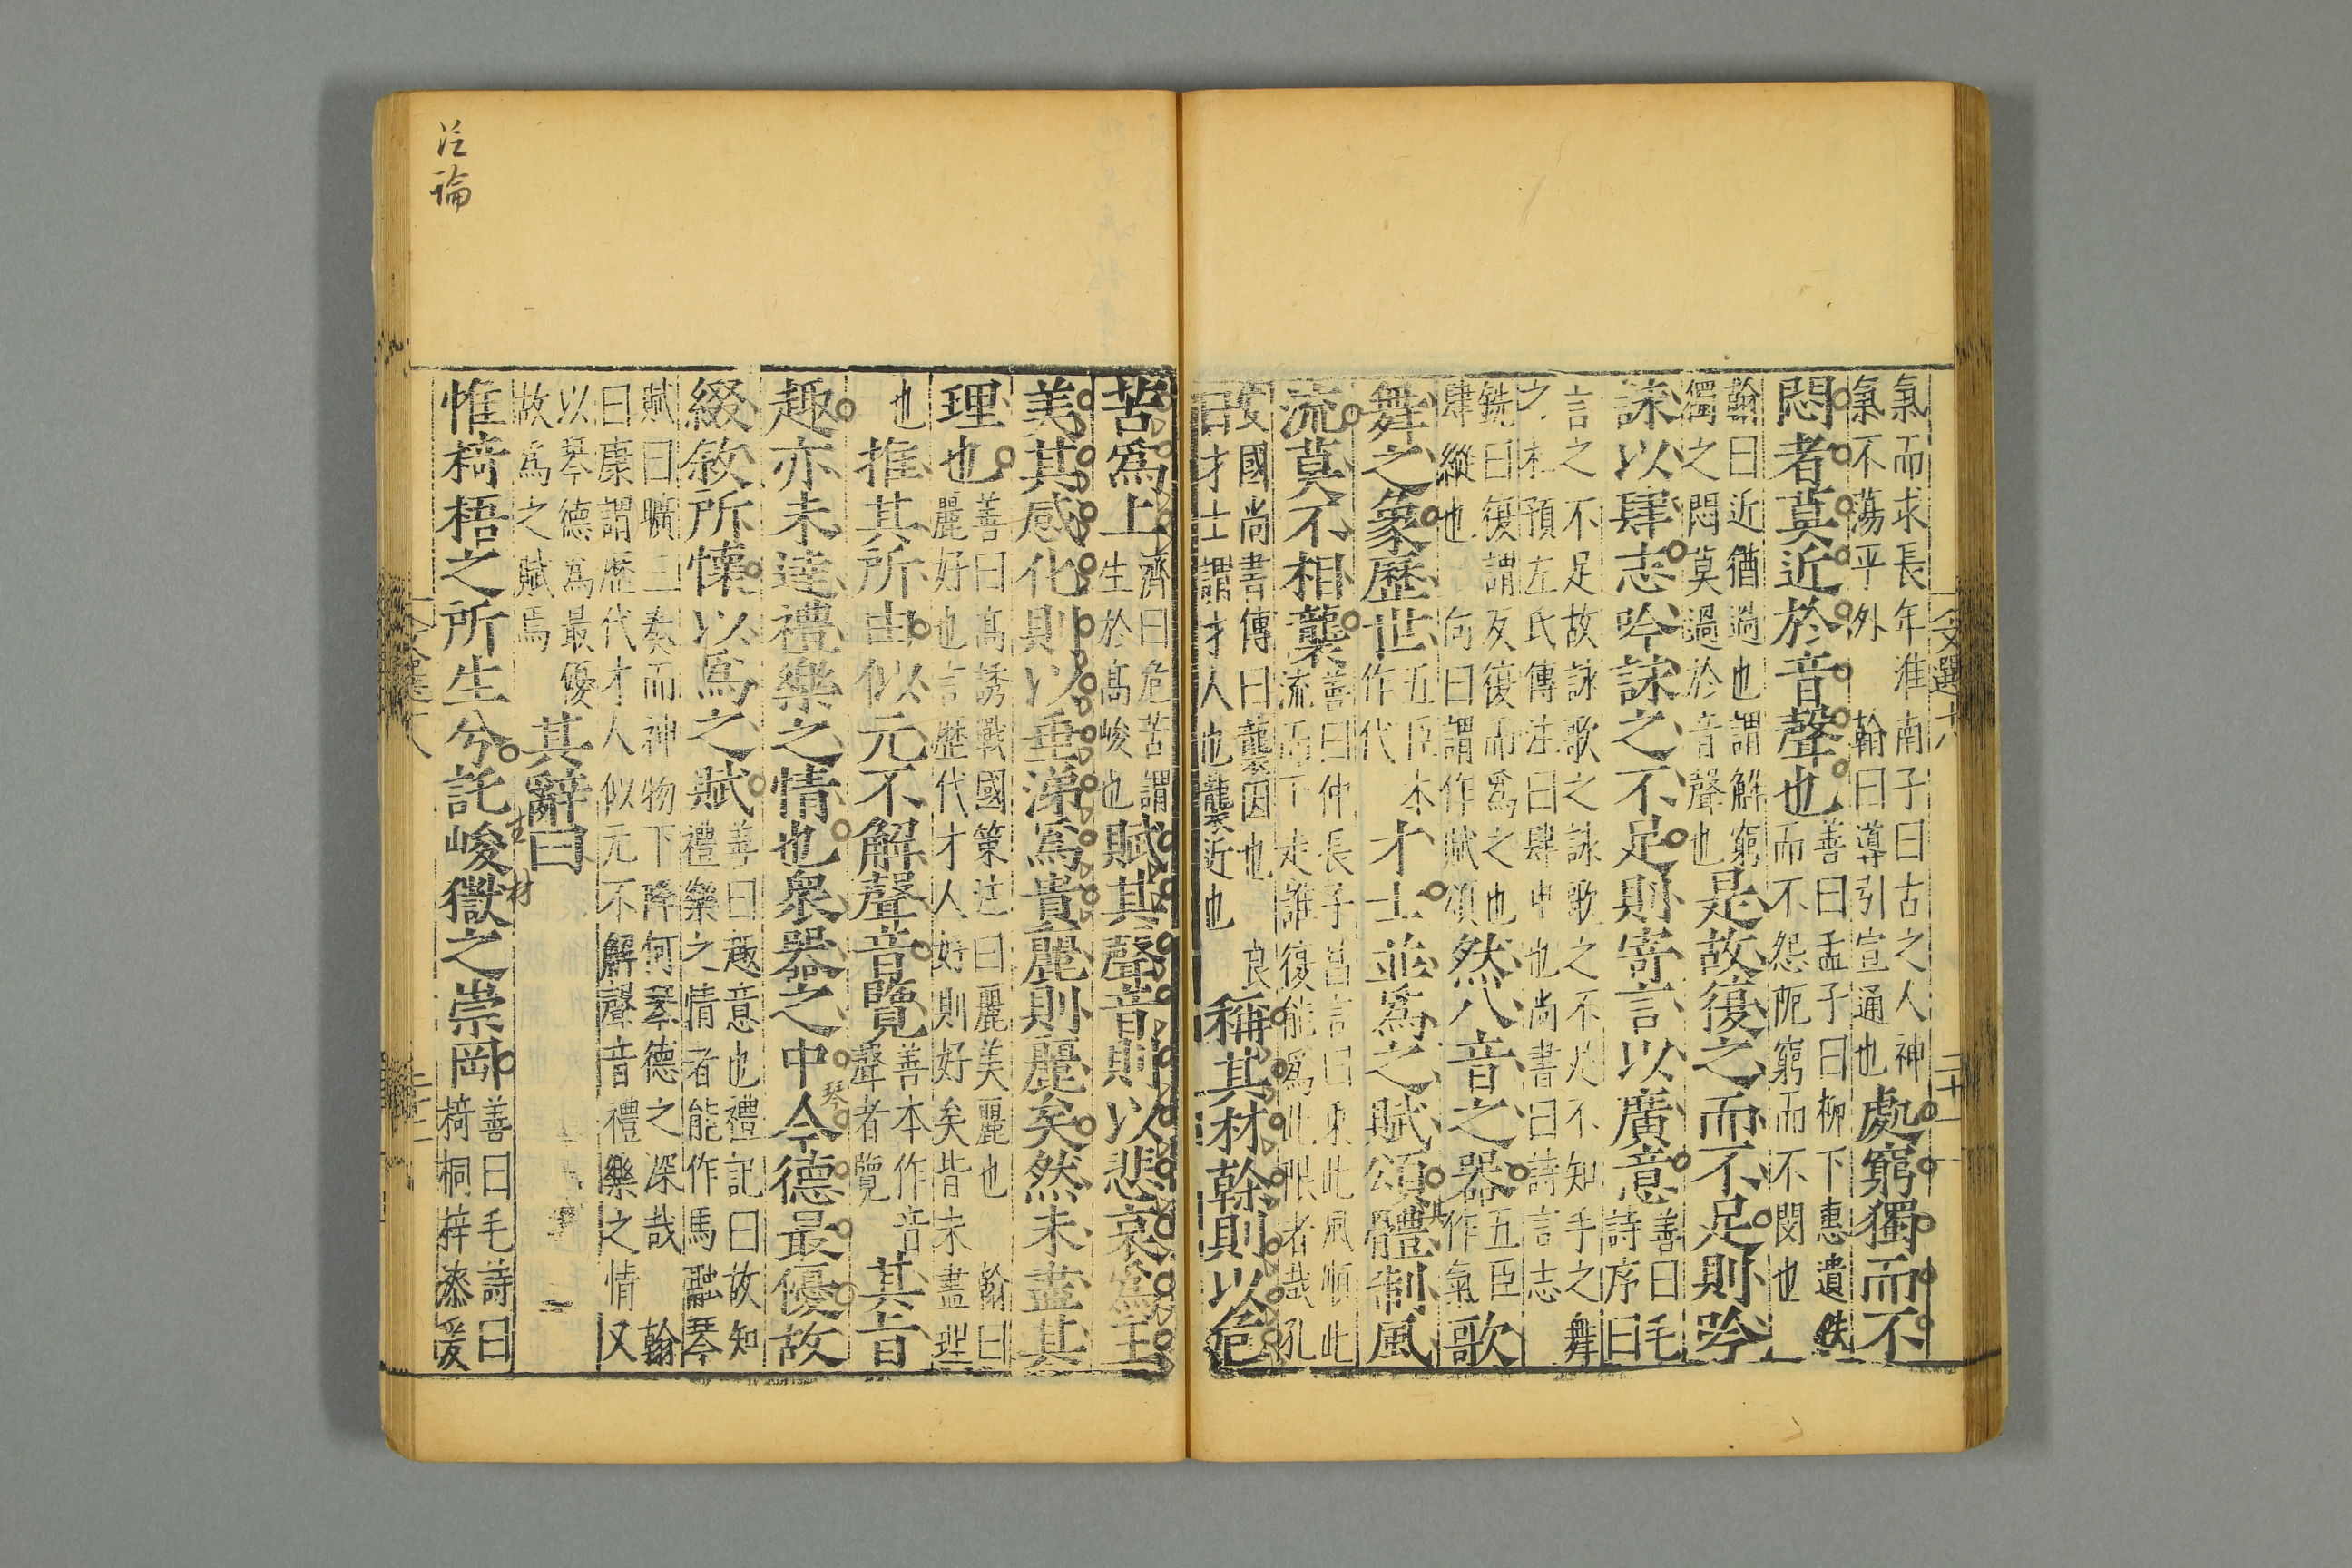 氣而求長年淮南子曰古之人神
氣不蕩乎外　翰曰導引宣通也
處窮獨而不
悶者莫近於音聲也
善曰孟子曰柳下惠遺佚
而不怨阨窮而不閔也
翰曰近猶過也謂解窮
獨之悶莫過於音聲也
是故復之而不足則吟
詠以肆志吟詠之不足則寄言以廣意
善曰毛
詩序曰
言之不足故詠歌之詠歌之不足不知手之舞
之杜預左氏傳注曰肆申也尚書曰詩言志
銑曰復謂反復而為之也
肆縱也　向曰謂作賦頌
然八音之器
五臣
作氣
歌
舞之象歷世
五臣本
作代
才士並為之賦頌
其
體制風
流莫不相襲
善曰仲長子昌言曰乘此風順此
流而下走誰復能為此限者哉孔
安國尚書傳曰襲因也　良
曰才士謂才人也襲近也
稱其材幹則以危
苦爲上
濟曰危苦謂
生於高峻也
賦其聲音則以悲哀爲主
美其感化則以垂涕爲貴麗則麗矣然未盡其
理也
善曰高誘戰國策注曰麗美麗也　翰曰
麗好也言歷代才人好則好矣皆未盡理
也
推其所由似元不解聲音覽
善本作音
聲者覽
其旨
趣亦未達禮樂之情也衆器之中
琴
今德最優故
綴敘所懷以爲之賦
善曰趣意也禮記曰故知
禮樂之情者能作馬融琴
賦曰曠三奏而神物下降何琴德之深哉　翰
曰康謂歷代才人似元不解聲音禮樂之情又
以琴德爲最優
故爲之賦焉
其辭曰
惟椅梧之所生兮託峻嶽之崇岡
材
善曰毛詩曰
椅桐梓漆爰
文選六
二十一
論